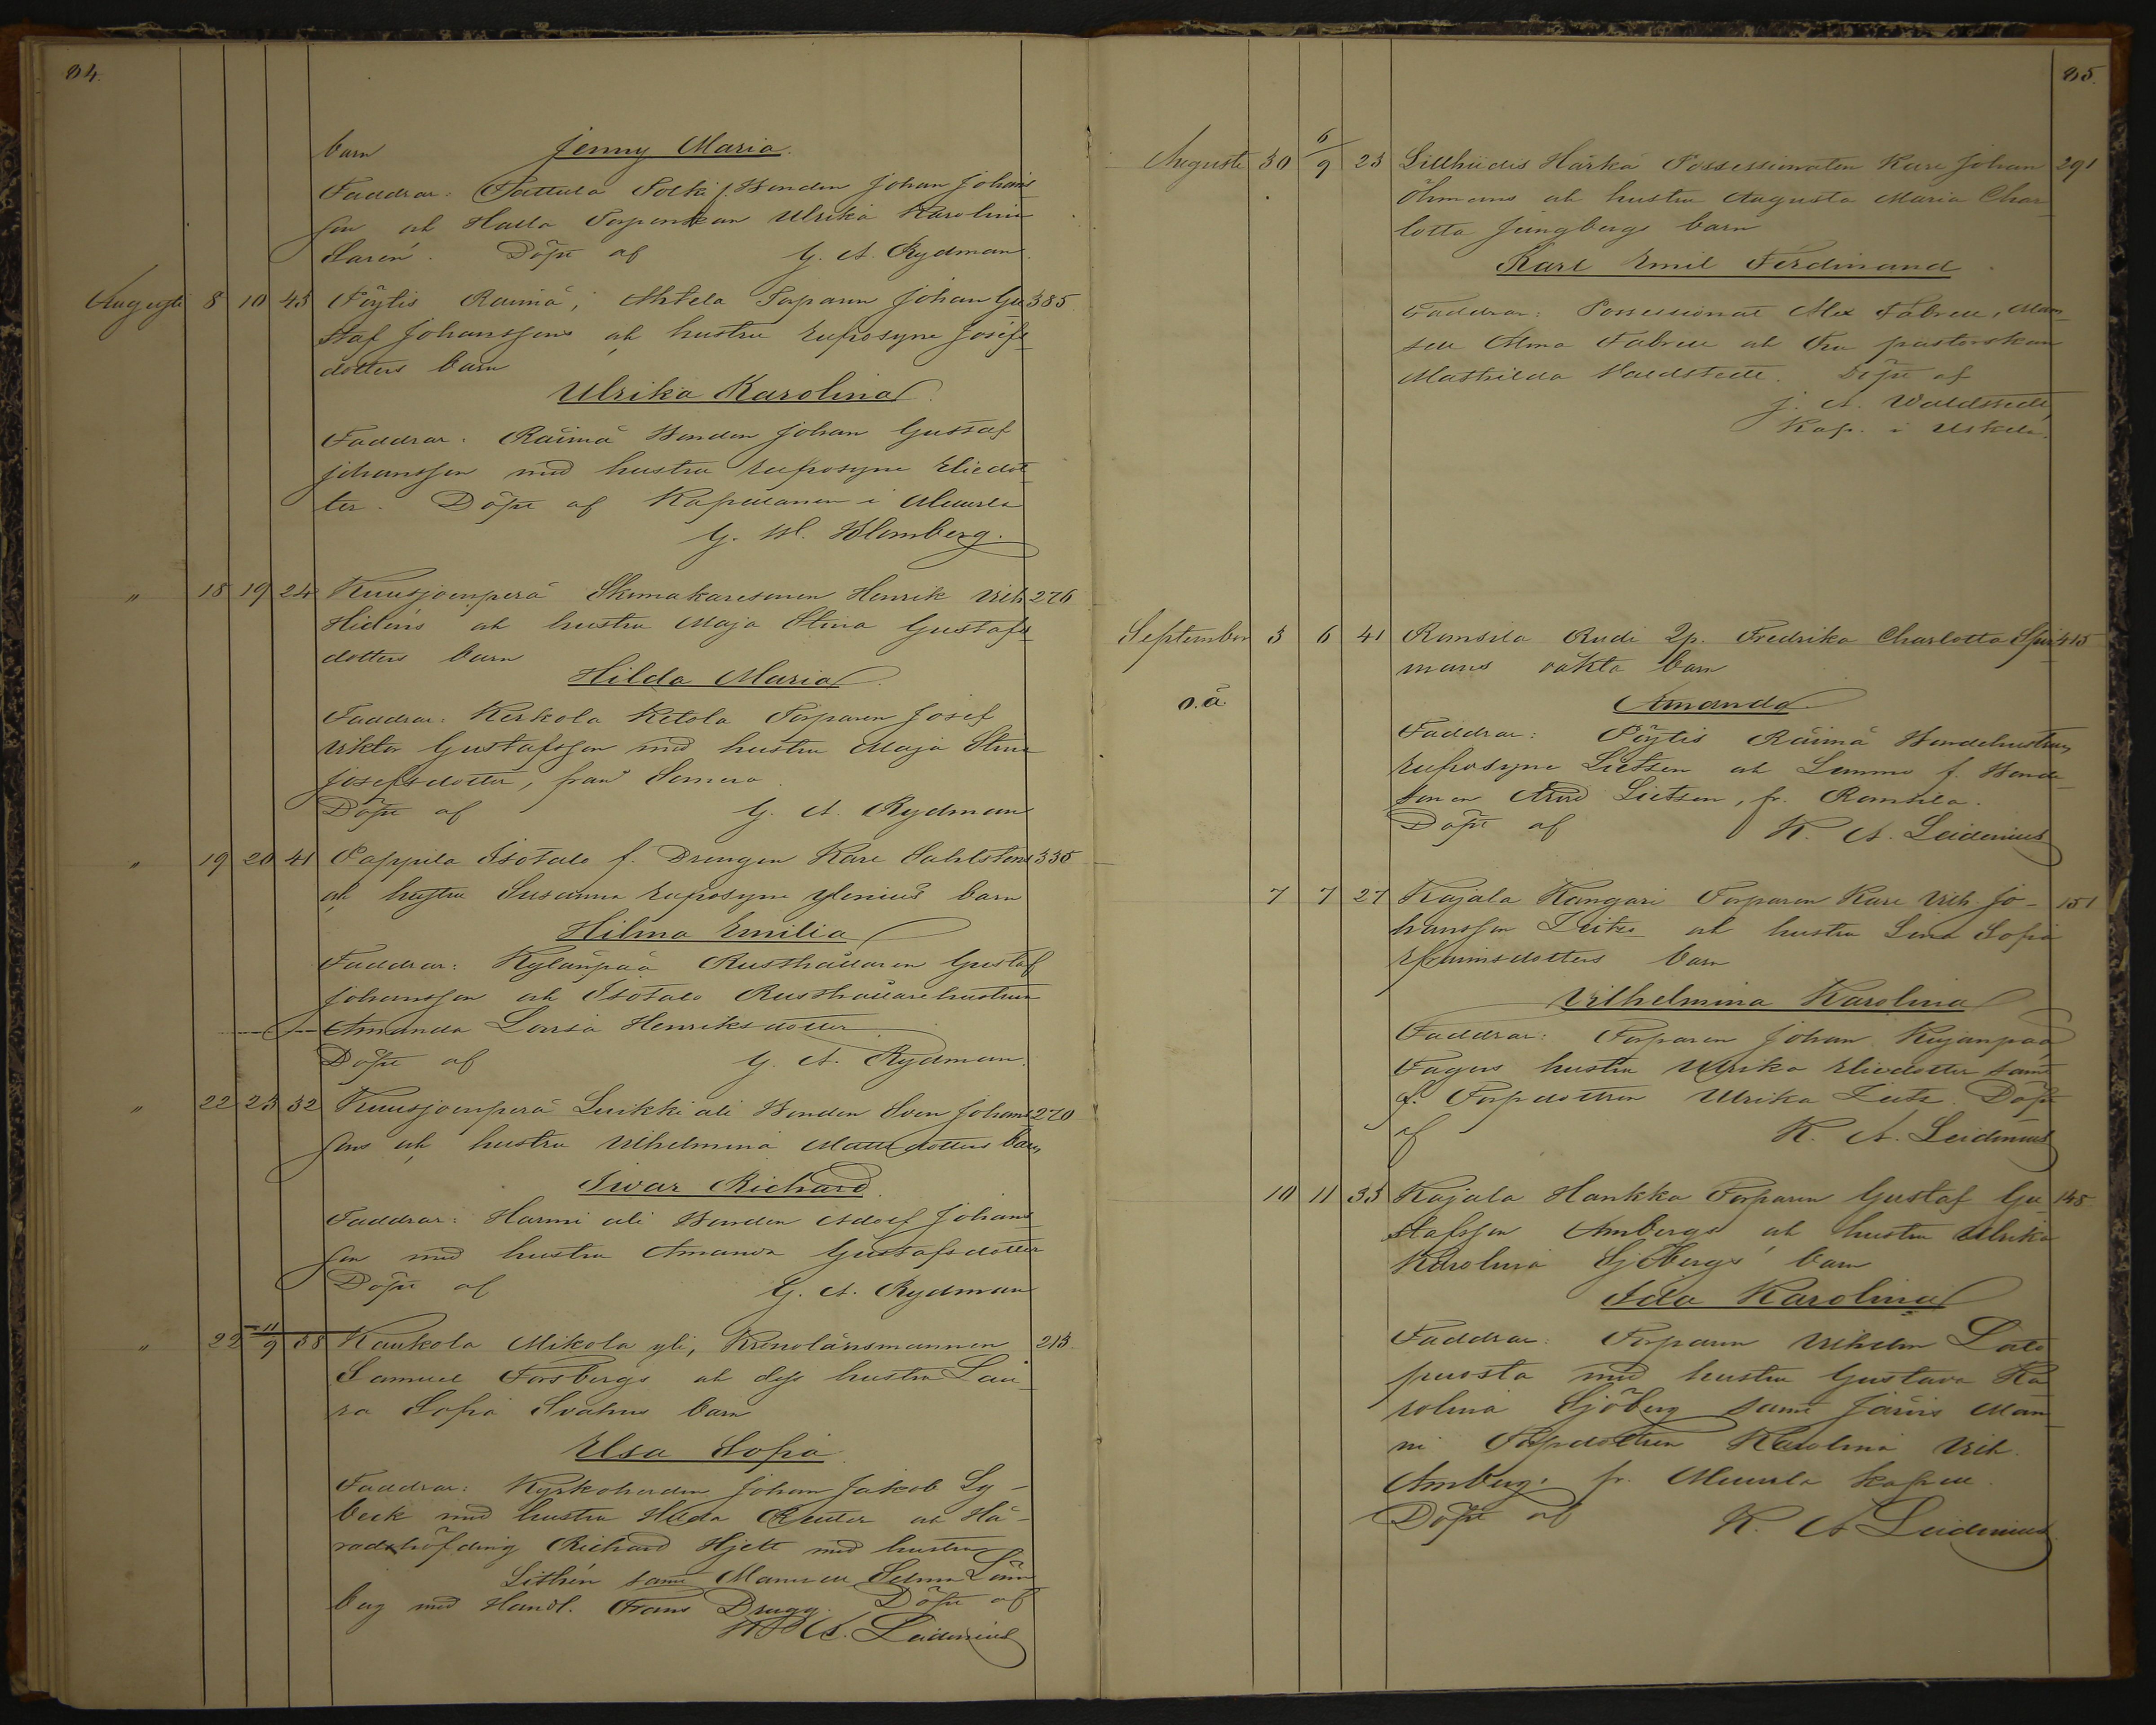 84.
barn Jenny Maria.
Faddrar: Pattula Potki f. Bonden Johan Johans
son och Halla Torpenskan Ulrika Karolina
Sarén. Döpt af G. A. Rydman.
Augusti 8 10 43 Pöytis Raimä, Ahtela Torparen Johan Gu 385
staf Johanssons och hustru Eufrosyne Josefs
dotters barn
Ulrika Karolina
Faddrar: Räimä Bonden Johan Gustaf
Johansson med hustru Eufrosyne Eliedot
ter. Döpt af Kapellanen i Muurla
G. W. Blomberg.
" 18 19 24 Kuusjoenperä Skomakaresonen Henrik Vilh 276
Hidéns och hustru Maja Stina Gustafs
dotters barn
Hilda Maria
Faddrar: Kerkola Ketola Torparen Josef
Viktor Gustafsson med hustru Maja Stina
Josefsdotter, från Somero
Döpt af G. A. Rydman
" 19 20 41 Pappila Isotalo f. Drengen Karl Sahlstens 335
och hustru Susanna Eufrosyne Ylenius barn
Hilma Emilia
Faddrar: Kylänpää Rusthållaren Gustaf
Johansson och Isotalo Rusthållarehustrun
Amanda Lovisa Henriksdotter
Döpt af G. A. Rydman.
" 22 23 32 Kuusjoenperä Luikki ali Bonden Sven Johans 270
sons och hustru Vilhelmina Mattsdotters barn
Ivar Richard
Faddrar: Harmi ali Bonden Adolf Johans
son med hustru Amanda Gustafsdotter
Döpt af G. A. Rydman
" 22 11/9 38 Kaukola Mikola yli, Kronolänsmannen 213
Samuel Forsbergs och dess hustru Lau
ra Sofia Svahns barn
Elsa Sofia
Faddrar: Kyrkoherden Johan Jakob Ly-
beck med hustru Hilda Reuter och Hä-
radshöfding Richard Hjelt med hustru
Lithén samt Mamsell Selma Lönn
berg med Handl. Frans Drugg. Döpt af
K. A. Leidenius
85.
Augusti 30 6/9 23 Lillhiidis Härkä Possessionaten Karl Johan 291
Öhmans och hustru Augusta Maria Char
lotta Ljungbergs barn
Karl Emil Ferdinand
Faddrar: Possessionat Alex Fabrell, Mam
sell Alma Fabrell och Fru pastorskan
Mathilda Waldstedt. Döpt af
J. A. Waldstedt,
Kap. i Uskela.
September 3 6 41 Romsila Rudi Qp. Fredrika Charlotta Spir 415
mans oäkta barn
o.ä. Amanda
Faddrar: Pöytis Räimä Bondehustrun
Eufrosyne Lietzen och Lemmo f. Bonde
sonen Arvid Lietzen, fr. Romsila.
Döpt af K. A. Leidenius
7 7 27 Kajala Kangari Torparen Karl Vilh. Jo- 151
hansson Zeitz och hustru Lena Sofia
Efraimsdotters barn
Vilhelmina Karolina
Faddrar: Torparen Johan Kujanpää
Fagers hustru Ulrika Eliedotter samt
f. Torpdottren Ulrika Zeitz. Döpt
af K. A. Leidenius
10 11 33 Kajala Hankka Torparen Gustaf Gu 148
stafsson Ambergs och hustru Ulrika
Karolina Sjöbergs barn
Ida Karolina
Faddrar: Torparen Vilhelm Lato
puosta med hustru Gustava Ka
rolina Sjöberg samt Järvis Man
ni Torpdottren Karolina Vilh.
Amberg, fr. Muurla kapell.
Döpt af K. A. Leidenius